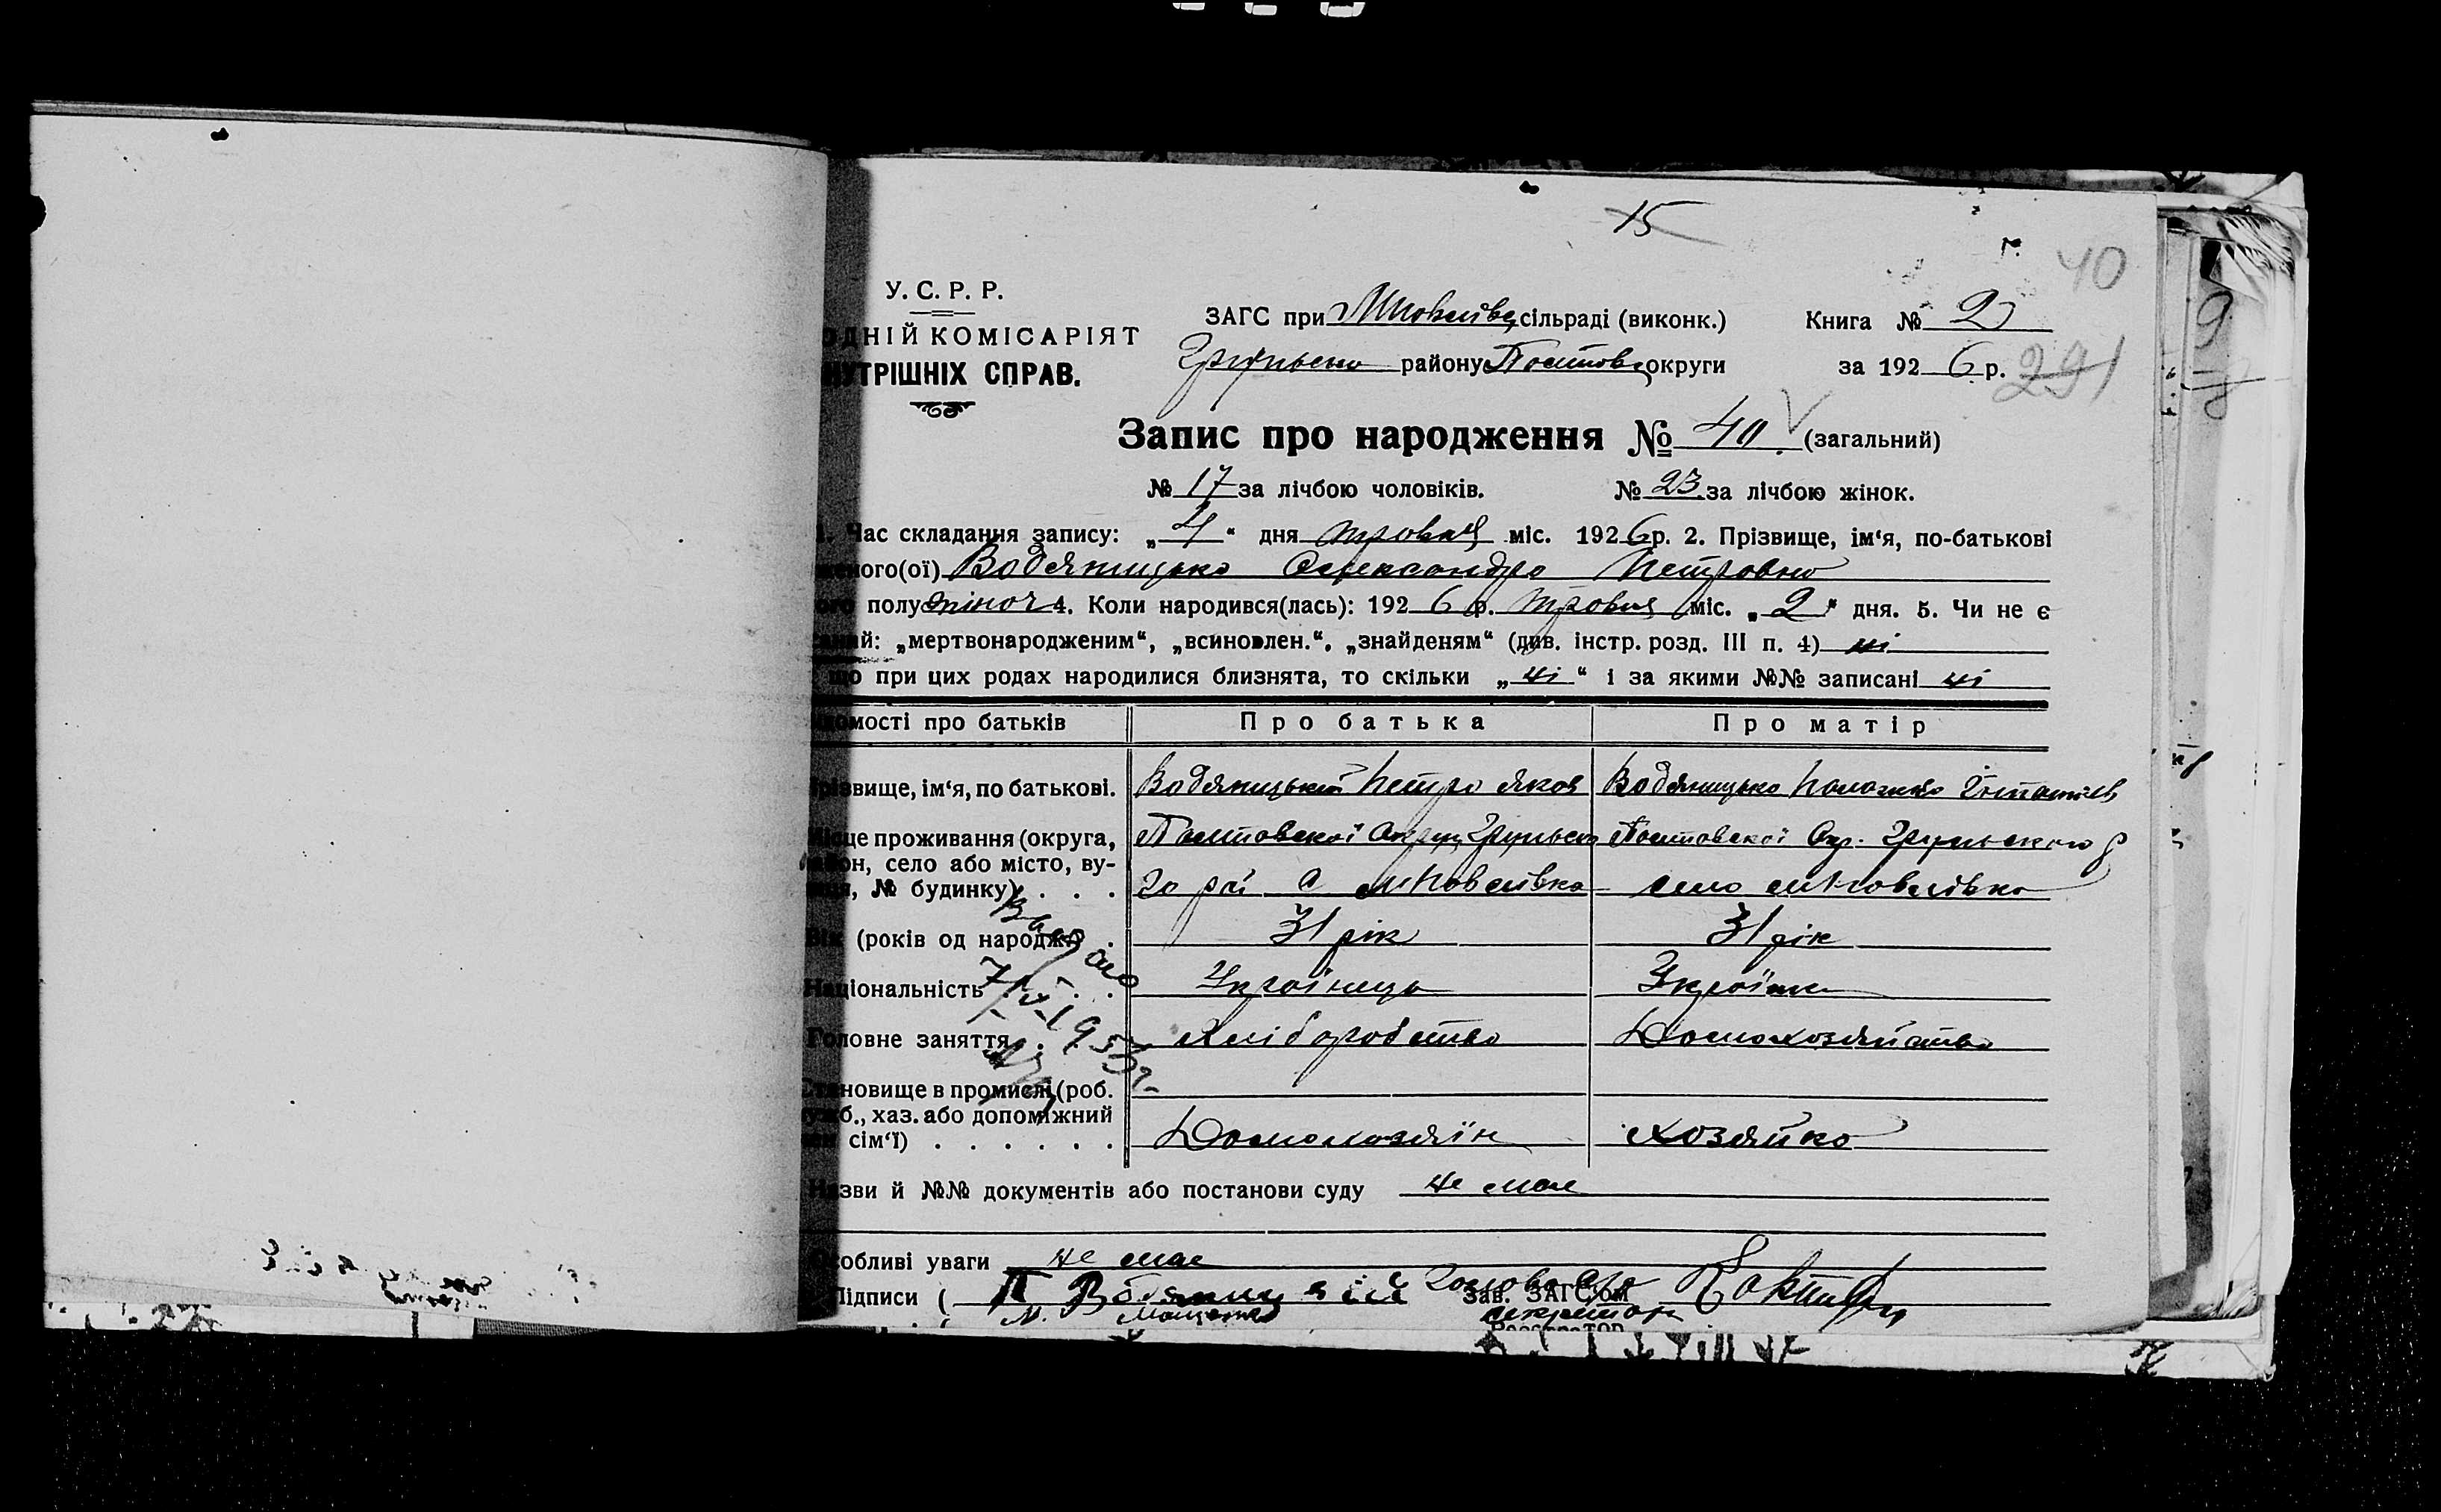 15
40
У. С. Р. Р.
ОДНІЙ КОМІСАРІЯТ
НУТРІШНІХ СПРАВ.
ЗАГС при сільраді (виконк.) Книга № 2
Грунсько району Полтовс округи за 1926 р. 291
Запис про народження № 40 (загальний)
№ 17 за лічбою чоловіків. № 23 за лічбою жінок.
1. Час складання запису: „4“ дня тровня міс. 1926 р. 2. Прізвище, ім‘я, по-батькові
женого(ої) Водяницько Олександро Петровно
ого полу жіноч 4. Коли народився(лась): 1926 р. тровня міс. „2“ дня. 5. Чи не є
саний: „мертвонародженим“, „всиновлен.“, „знайденям“ (див. інстр. розд. III п. 4) ні
що при цих родах народилися близнята, то скільки „ні“ і за якими №№ записані ні
домості про батьків Про батька Про матір
Прізвище, ім‘я, по батькові. Водяницький Петро Яков Водяницько
Місце проживання (округа, Полтовської Округи Грунсько Полтовської Окр. Грунського р
район, село або місто, ву-
лиця, № будинку) . . . го рai с село
Вік (років од народж.) . 31 рік 31 рік
Національність . . . Українець Українка
Головне заняття . . Хліборобство Домохозяйство
7/V-1953г.
Становище в промислі (роб.
служб., хаз. або допоміжний
член сім‘ї) . . . . . . Домохозяїн Хозяйко
Назви й №№ документів або постанови суду не має
Особливі уваги не має
Підписи ( П Водяницкій Голова с/р Зав. ЗАГС‘ом
М. секретар
Реєстратор